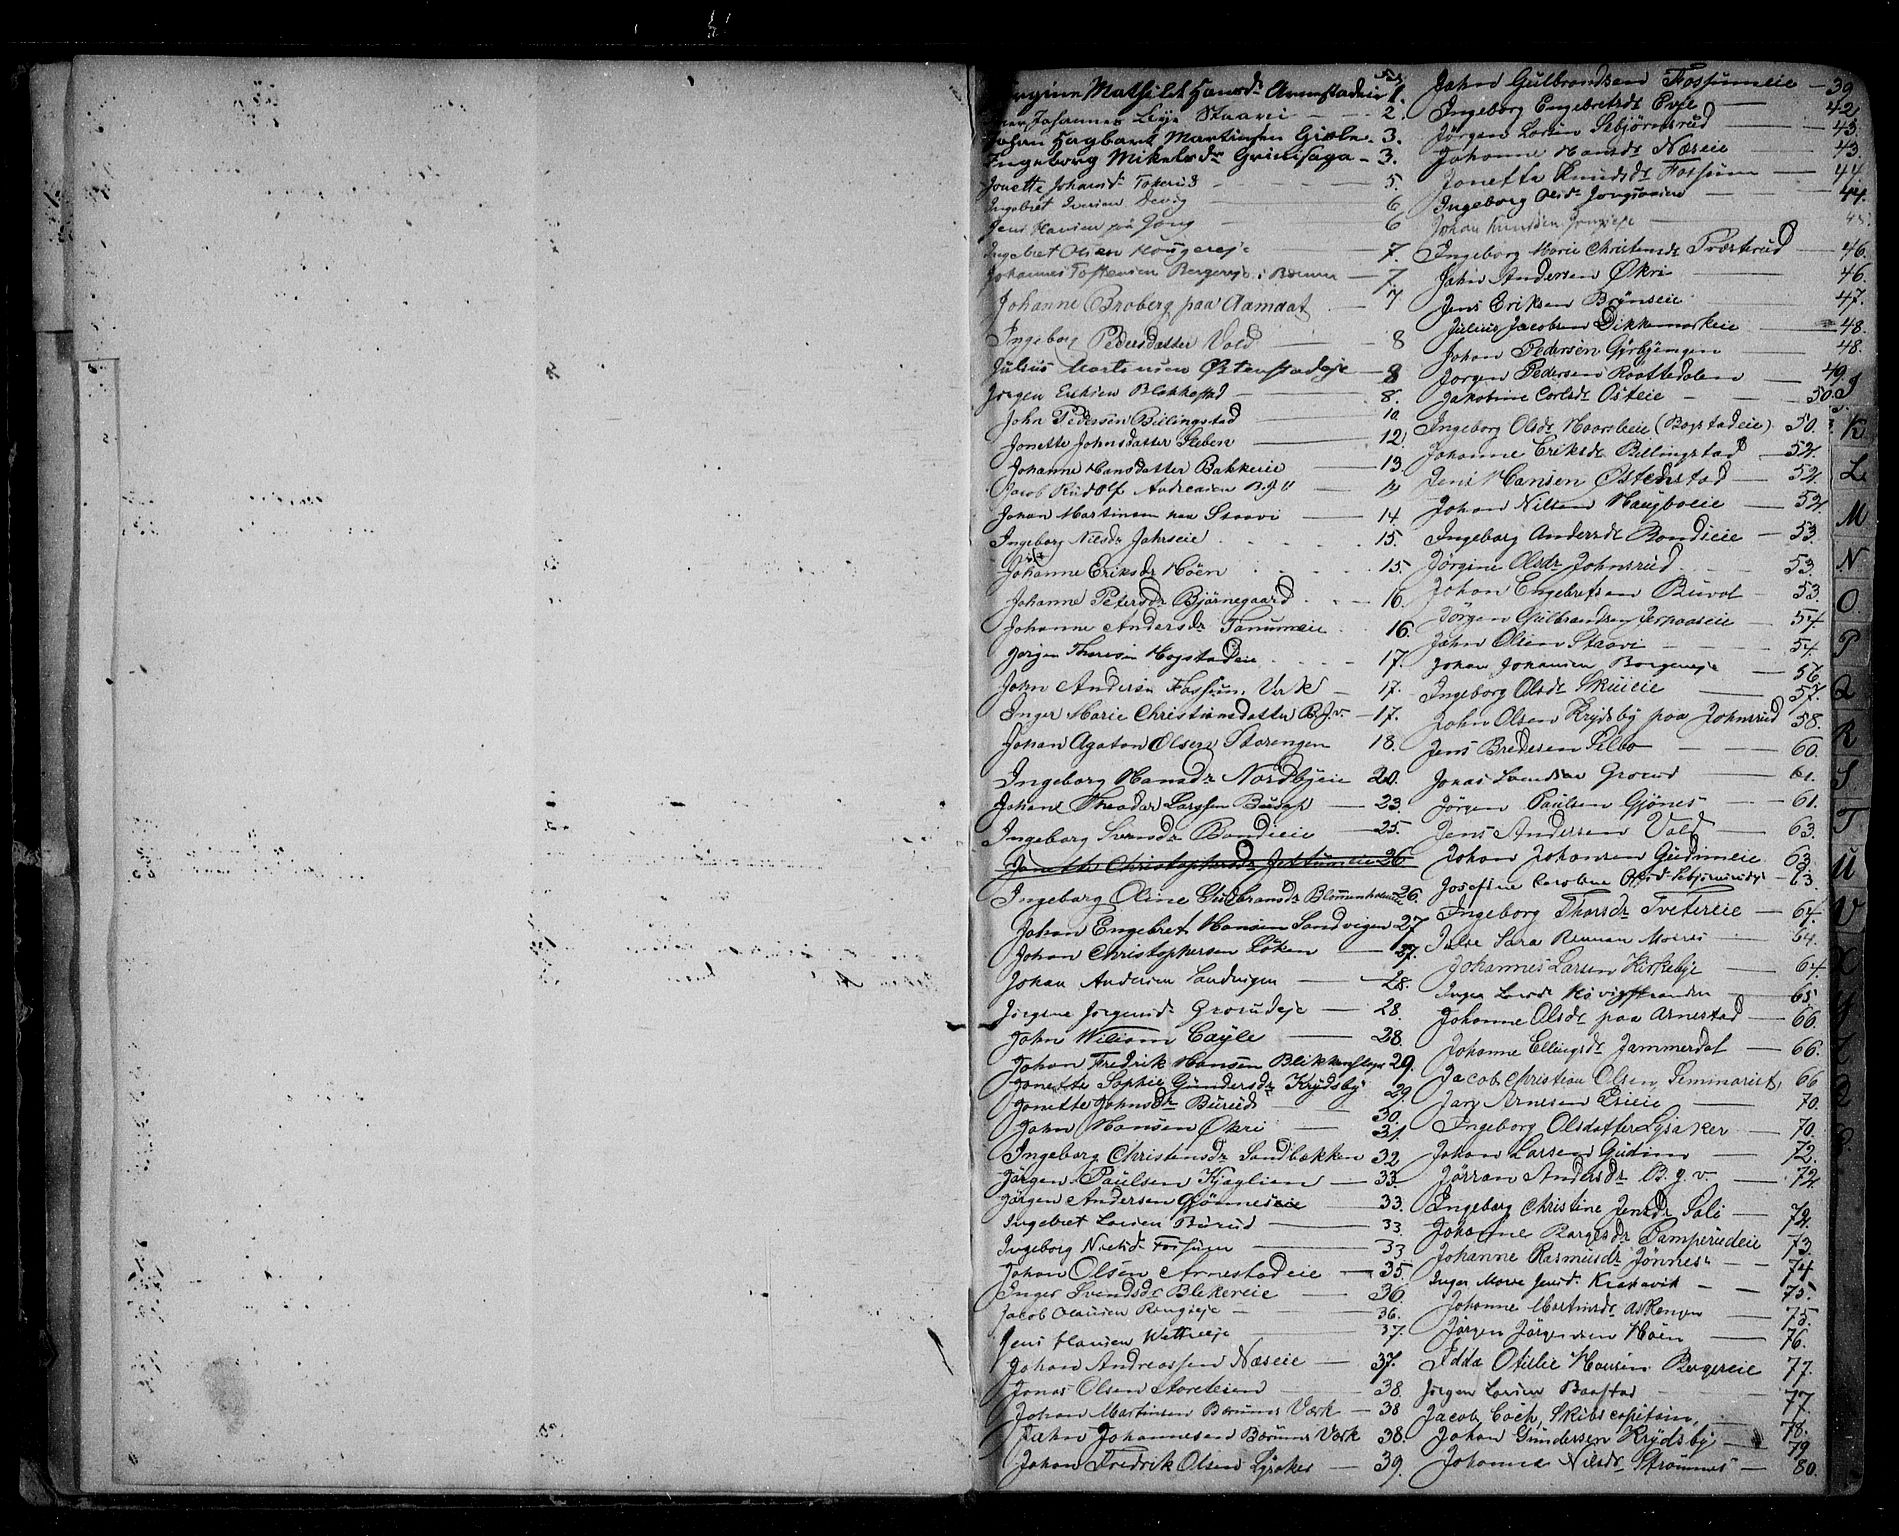 Mathilde Hansdr Arnestadeie 1.
Johannes Staavi 2.
Johan Hagbart Martinsen Gisle 3.
Ingeborg Mikelsdr Grinisaga 3.
Jonette Johansdr Tokerud 5.
Ingebret Iversen Devig 6
Jens Hansen paa Gong 6
Ingebret Olsen Hougereje 7.
Johannes Bergereje i Bærum 7.
Johanne Broberg paa Aamdat 7
Ingeborg Pedersdatter Vold 8
Julius Martinsen Østenstadeje 8
Jørgen Eriksen Blakkestad 8.
John Pedersen Billingstad 10
Jonette Johnsdatter Steben 12.
Johanne Hansdatter Bakkeeie 13.
Jacob Rudolf Andreasen B.J.V. 14
Johan Martinsen paa Staavi 14.
Ingeborg Nilsdr Jahrseie 15.
Johanne Eriksdr Høen 15.
Johanne Petersdr Bjørnegaard 16.
Johanne Andersdr Tanumeie 16.
Jørgen Thoresen Hogstadeie 17.
John Andersen Fossum Verk 17.
Inger Marie Christiansdatter B.J.v. 17.
Johan Agaton Olsen Storengen 18.
Ingeborg Hansdr Nordbyeie 20.
Johan Theodor Larssen Busop 23.
Ingeborg Svensdr Bondieie 25.
Jonette Christophersdr Jettumeie 26
Ingeborg Oline Gulbransdr Blommenholmeie 26.
Johan Engebret Hansen Sandvigen 27
Johan Christophersen Løken 27.
Johan Andersen Sandvigen 28.
Jørgine Jørgensdr Grorudeje 28.
John Wiliam Cayle 28.
Johan Fredrik Hansen Blikkenslager 29.
Jonette Sophie Gundersdr Krydsby 29.
Jonette Johnsdr Burud 30.
John Hansen Økri 31.
Ingeborg Christensdr Sandbækken 32
Jørgen Paulsen Kjaglien 33.
Jørgen Andersen Gjønneseie 33.
Ingebret Larsen Burud 33
Ingeborg Nielsdr Fossum 33
Johan Olsen Arnestadeie 35.
Inger Svendsdr Blekereie 36
Jacob Olausen Rongseje 36.
Jens Hansen Wettreeje 37.
Johan Andreassen Næseie 37.
Jonas Olsen Storeteien 38.
Johan Martinsen Bærums Værk 38
John Johannesen Bærums Værk 38.
Johan Fredrik Olsen Lysaker 39.
John Gulbrandsen Fossumeie 39
Ingeborg Engebretsdr Evje 42.
Jörgen Larsen Sebjørnsrud 43.
Johanne Hansdr Næseie 43.
Jonette Knudsdr Fossum 44.
Ingeborg Olsdr Jongsoeie 44.
Johan Knudsen Jongseje 45.
Ingeborg Marie Christensdr Præsterud 46.
John Andersen Økri 46.
Jens Eriksen Brønseie 47.
Julius Jacobsen Dikkemarkeie 48.
Johan Pedersen Gjerbjengen 48.
Jørgen Pedersen Raattedalen 49.
Jakobine Carlsdr Osteie 50
Ingeborg Olsdr Haarsleie (Bogstadeie) 50.
Johanne Eriksdr Billingstad 52.
Jens Hansen Østenstad 52.
Johan Nilsen Haugboeie 52.
Ingeborg Andersdr Bondieie 53.
Jørgine Olsdr Johnsrud 53.
Johan Engebretsen Burvol 53.
Jørgen Gulbrandsen Jerpaaseie 54.
John Olsen Staavi 54.
Johan Johansen Borgereje 56.
Ingeborg Olsdr Skuieie 57.
John Olsen Krydsby paa Johnsrud 58.
Jens Bredesen Selbo 60.
Jonas Svendsen Grorud 61.
Jørgen Paulsen Gjønes 61.
Jens Andersen Vold 63.
Johan Johansen Gudimeie 63
Josefine Caroline Olsdr Sebjørnsrudeje 63.
Ingeborg Thorsdr Tvetereie 64
Sara 64.
Johannes Larsen Kirkebye 64.
Inger Larsdr Høvigstranden 65
Johanne Olsdr paa Arnestad 66
Johanne Ellingsdr Jammerdal 66.
Jacob Christian Olsen, Seminarist, 66
Arnesen 70.
Ingeborg Olsdatter Lysaker 70.
Johan Larsen Gudim 72.
Jørran Andersdr B.g.v. 72.
Ingeborg Christine Jensdr Soli 72.
Johanne Borgesdr Gamperudeie 73.
Johanne Rasmusdr Jønnes 74
Inger Marie Jensdr Krakavik 75.
Johanne Martinsdr Askengen 75.
Jørgen Jørgensen Høen 76.
Idda Otilie Hansen Bergereie 77.
Jørgen Larsen Baastad 77.
Jacob Coch, Skibscapitain, 78.
Johan Gundersen Krydsby 79
Johanna Nilsdr Strømnes 80.
J
K
L
M
N
O
P
Q
R
S
T
U
V
X
Y
Z